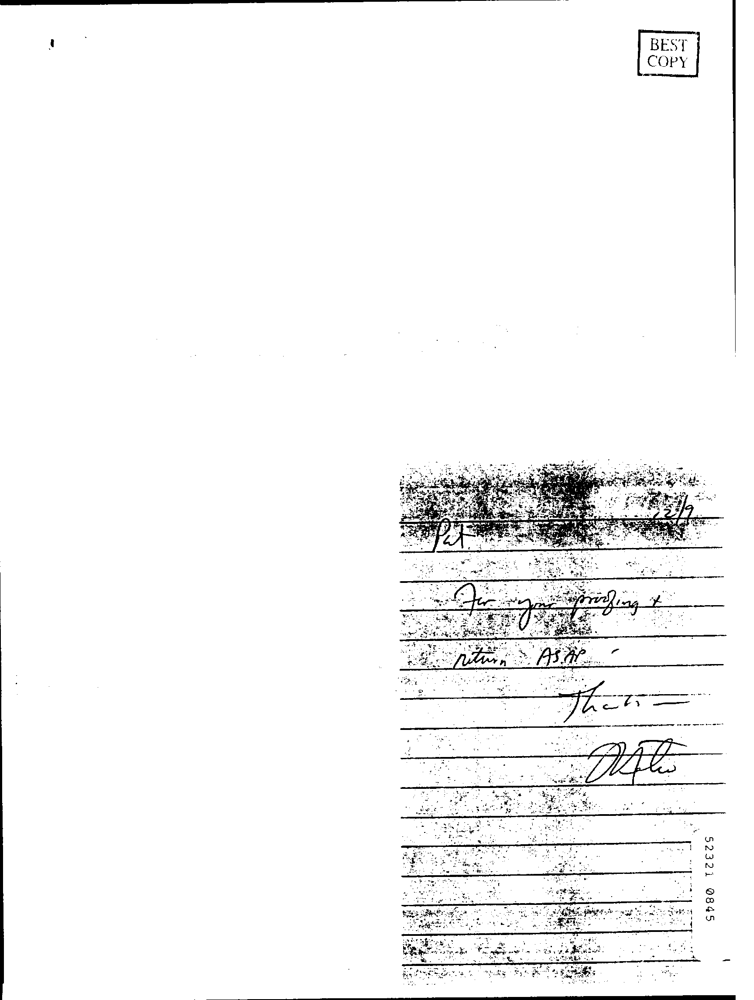 BEST
COPY
Pat.
For your proofing +
return ASAP -
Thanks -
52321 0845